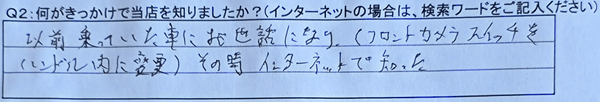 Q2:何がきっかけで当店を知りましたか?(インターネットの場合は、検索ワードをご記入ください)
以前乗っていた車にお世話になり、(フロントカメラスイッチを
ハンドル内に変更)その時インターネットで知った